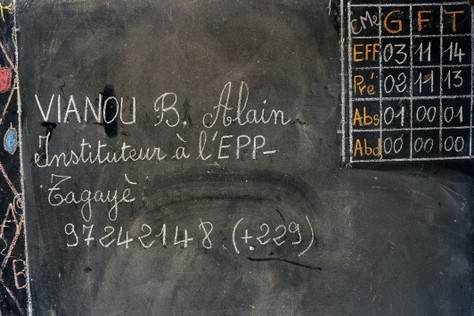 VIANOU B. Alain
Instituteur à l'EPP-
Tagayè
97242148 (+229)
CM2 G F T
EFF 03 11 14
Pré 02 11 13
Abs 01 00 01
Abd 00 00 00
A
B